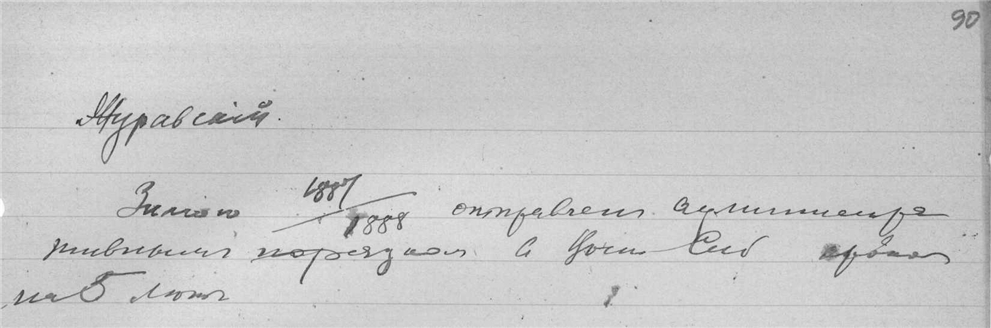 90
Журавскій.
Зимою 1887/1888 отправлен администра
тивным порядком в Вост Сиб сроком
на 5 лет